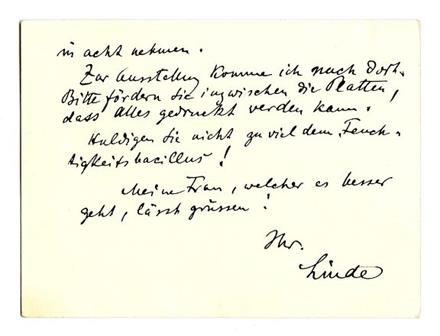 in acht nehmen.
Zur Ausstellung komme ich nach dort.
Bitte fördern Sie inzwischen die Platten,
dass alles gedruckt werden kann.
Huldigen Sie nicht zu viel dem "Feuch-
tigkeitsbacillus"!
Meine Frau, welcher es besser
geht, lässt grüssen!
Ihr.
Linde